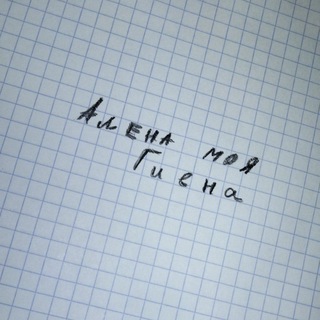 Алена моя
Гиена